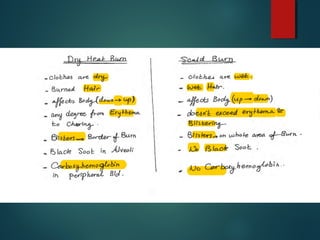 Dry Heat Burn
- Clothes are dry.
- Burned Hair.
- affects Body (down → up)
- any degree from Erythema
to Charing.
- Blisters → Border of Burn
- Black Soot in Alveoli
- Carboxyhemoglobin
in peripheral Bld.
Scald Burn
- Clothes are wet.
- Wet Hair.
- affects Body (up → down)
- doesn't exceed erythema &
Blistering
- Blisters → on whole area of Burn.
- No Black Soot.
- No Carboxyhemoglobin.